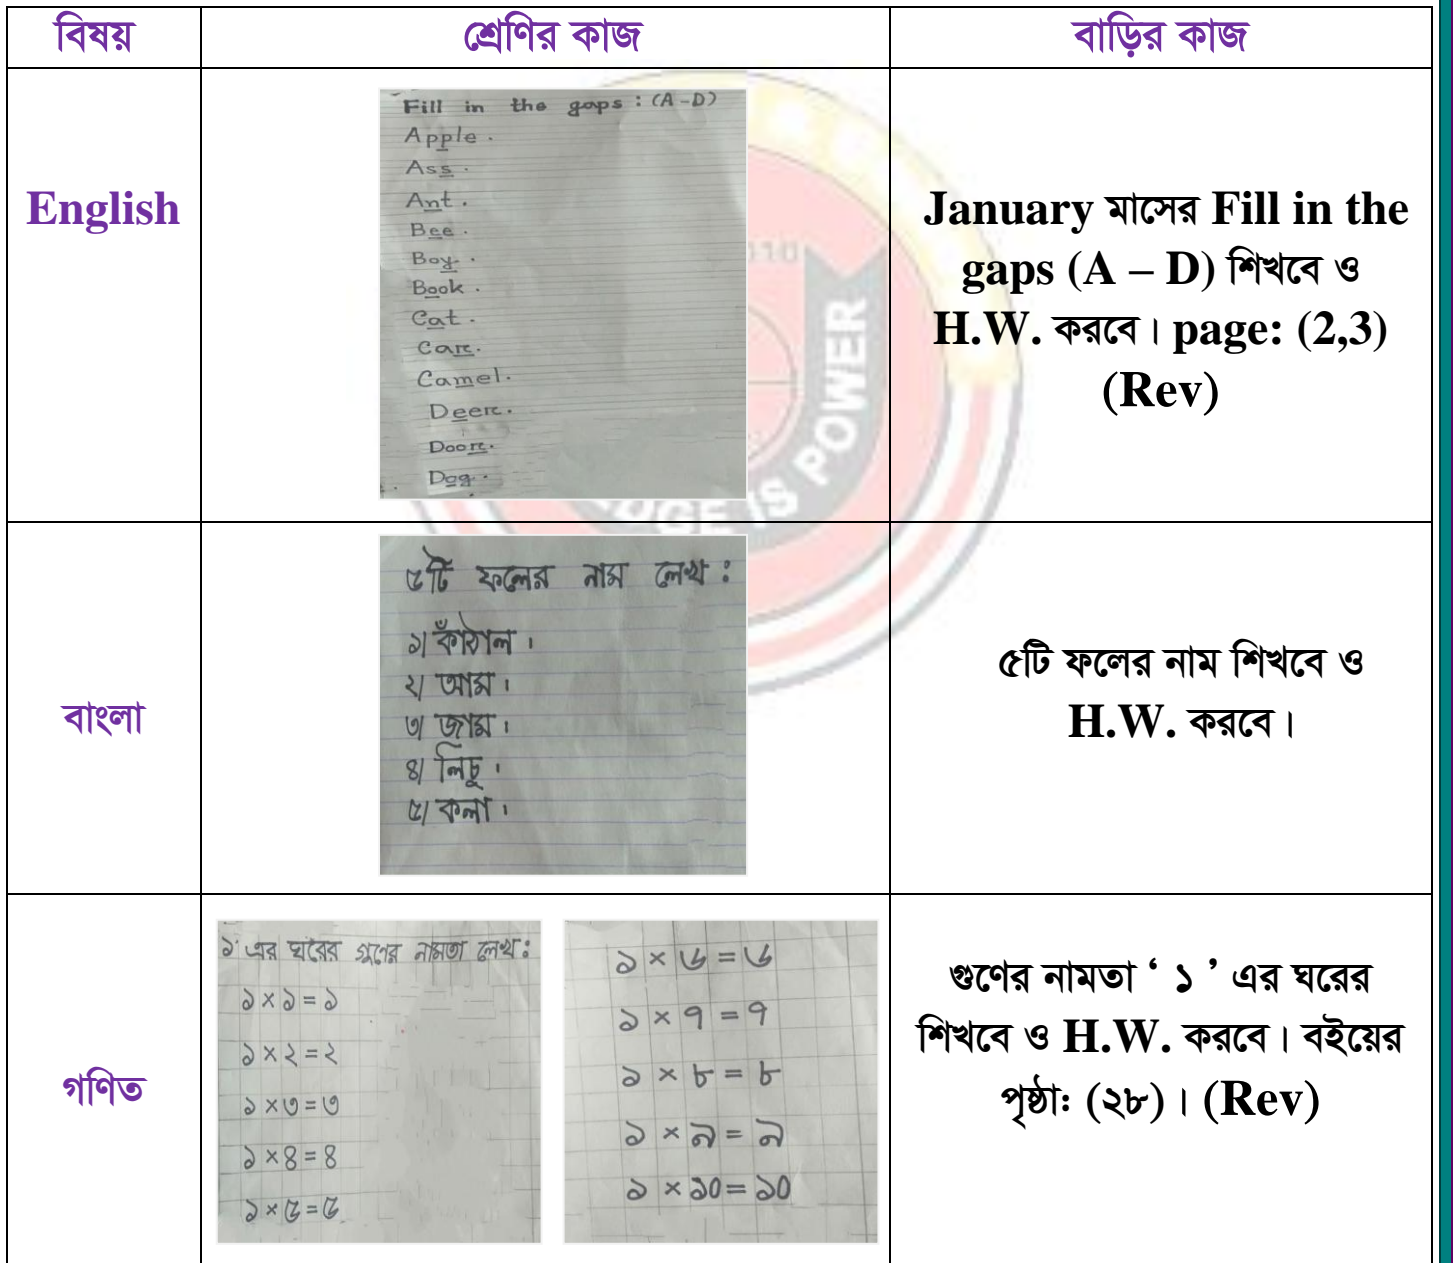 বিষয় শ্রেণির কাজ বাড়ির কাজ
English
Fill in the gaps : (A-D)
Apple.
Ass.
Ant.
Bee.
Boy.
Book.
Cat.
Car.
Camel.
Deer.
Door.
Dog.
January মাসের Fill in the
gaps (A – D) শিখবে ও
H.W. করবে। page: (2,3)
(Rev)
110
IS POWER
বাংলা
৫টি ফলের নাম লেখ :
১/ কাঁঠাল।
২/ আম।
৩/ জাম।
৪/ লিচু।
৫/ কলা।
৫টি ফলের নাম শিখবে ও
H.W. করবে।
গণিত
১' এর ঘরের গুণের নামতা লেখ:
১×১=১
১×২=২
১×৩=৩
১×৪=৪
১×৫=৫
১×৬=৬
১×৭=৭
১×৮=৮
১×৯=৯
১×১০=১০
গুণের নামতা ‘ ১ ’ এর ঘরের
শিখবে ও H.W. করবে। বইয়ের
পৃষ্ঠাঃ (২৮)। (Rev)